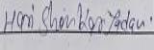 Hari Shankar Yadav